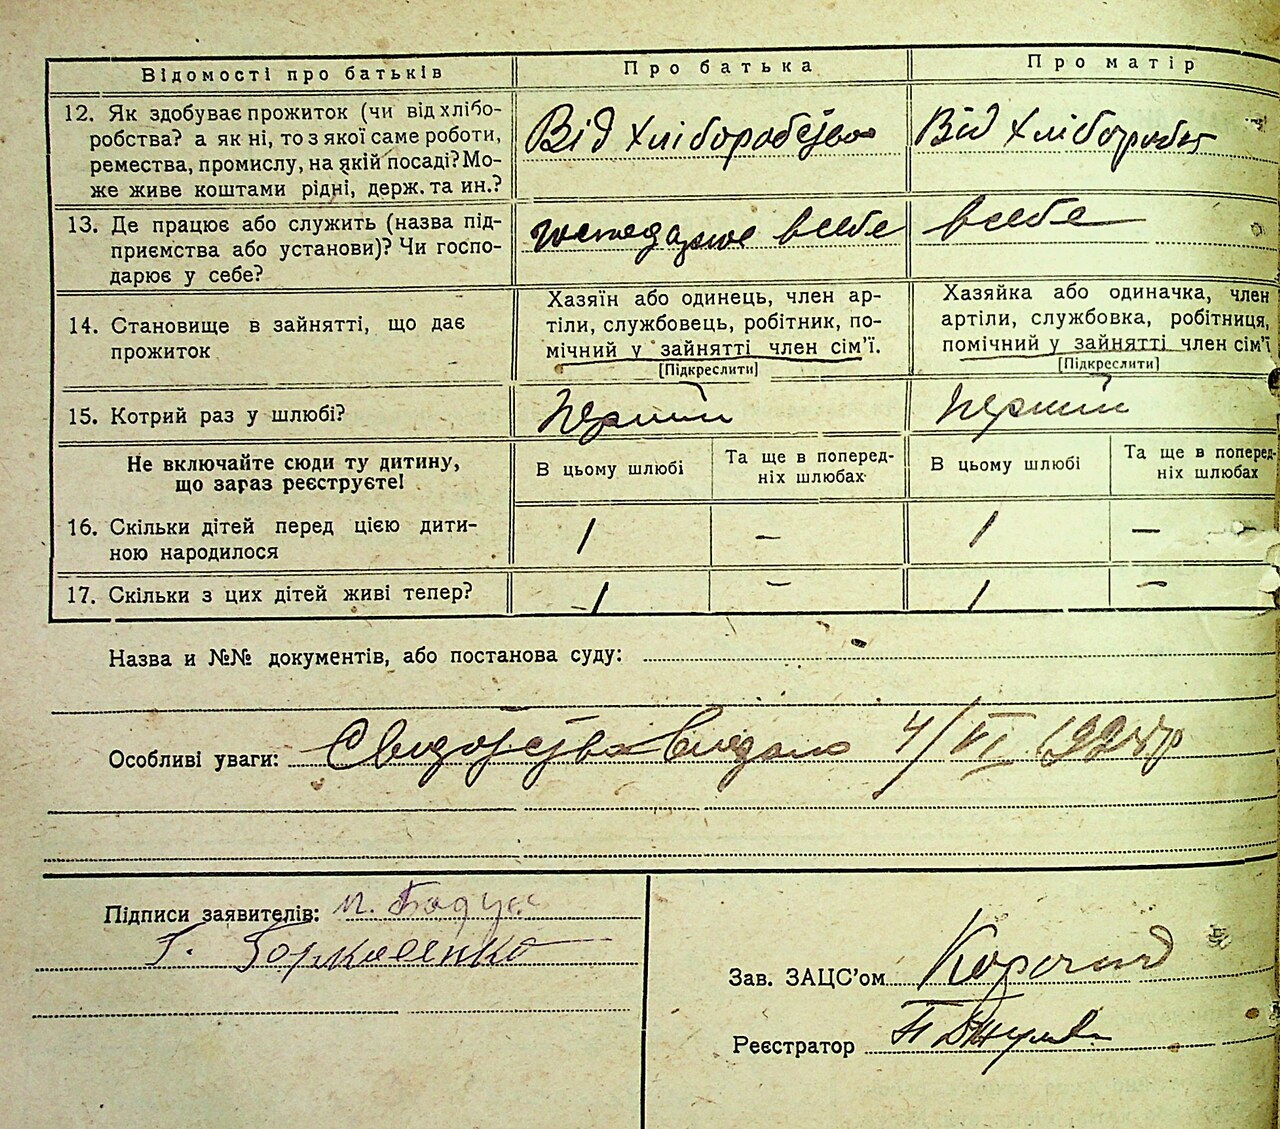 Відомості про батьків
Про батька
Про матір
12. Як здобуває прожиток (чи від хлібо-
робства? а як ні, то з якої саме роботи,
ремества, промислу, на якій посаді? Мо-
же живе коштами рідні, держ. та ин.?
Від хліборобства
Від хлібороб
13. Де працює або служить (назва під-
приємства або установи)? Чи госпо-
дарює у себе?
всебе
всебе
14. Становище в зайнятті, що дає
прожиток
Хазяїн або одинець, член ар-
тіли, службовець, робітник, по-
мічний у зайнятті член сім'ї.
[Підкреслити]
Хазяйка або одиначка, член
артіли, службовка, робітниця,
помічний у зайнятті член сім'ї
[Підкреслити]
15. Котрий раз у шлюбі?
перший
перший
Не включайте сюди ту дитину,
що зараз реєструєте!
В цьому шлюбі
Та ще в поперед-
ніх шлюбах
В цьому шлюбі
Та ще в поперед-
ніх шлюбах
16. Скільки дітей перед цією дити-
ною народилося
1
–
1
–
17. Скільки з цих дітей живі тепер?
1
–
1
–
Назва и №№ документів, або постанова суду:
Особливі уваги: Свидоцтво видано 4/VI
Підписи заявителів: М.
Г.
Зав. ЗАЦС'ом
Реєстратор